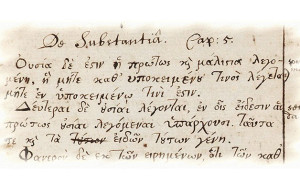 De Substantiâ. Cap: 5.
Οὐσία δέ ἐςιν ἡ πρώτως ϗ μάλιςα λεγο-
μένη, ἡ μήτε καθ' ὑποκειμένȣ τινος λέγεται
μήτε ἐν ὑποκειμένῳ τινί ἐςιν.
Δεύτεραι δὲ ȣσίαι λέγονται, ἐν οἷς εἴδεσιν αἱ
πρώτως ȣσίαι λεγόμεναι ὑπάρχουσι. Ταῦτα
τε ϗ τὰ τȣτων εἰδῶν τȣτων γένη.
Φανερὸν δὲ ἐκ τῶν εἰρημένων, ὅτι τῶν καθ'